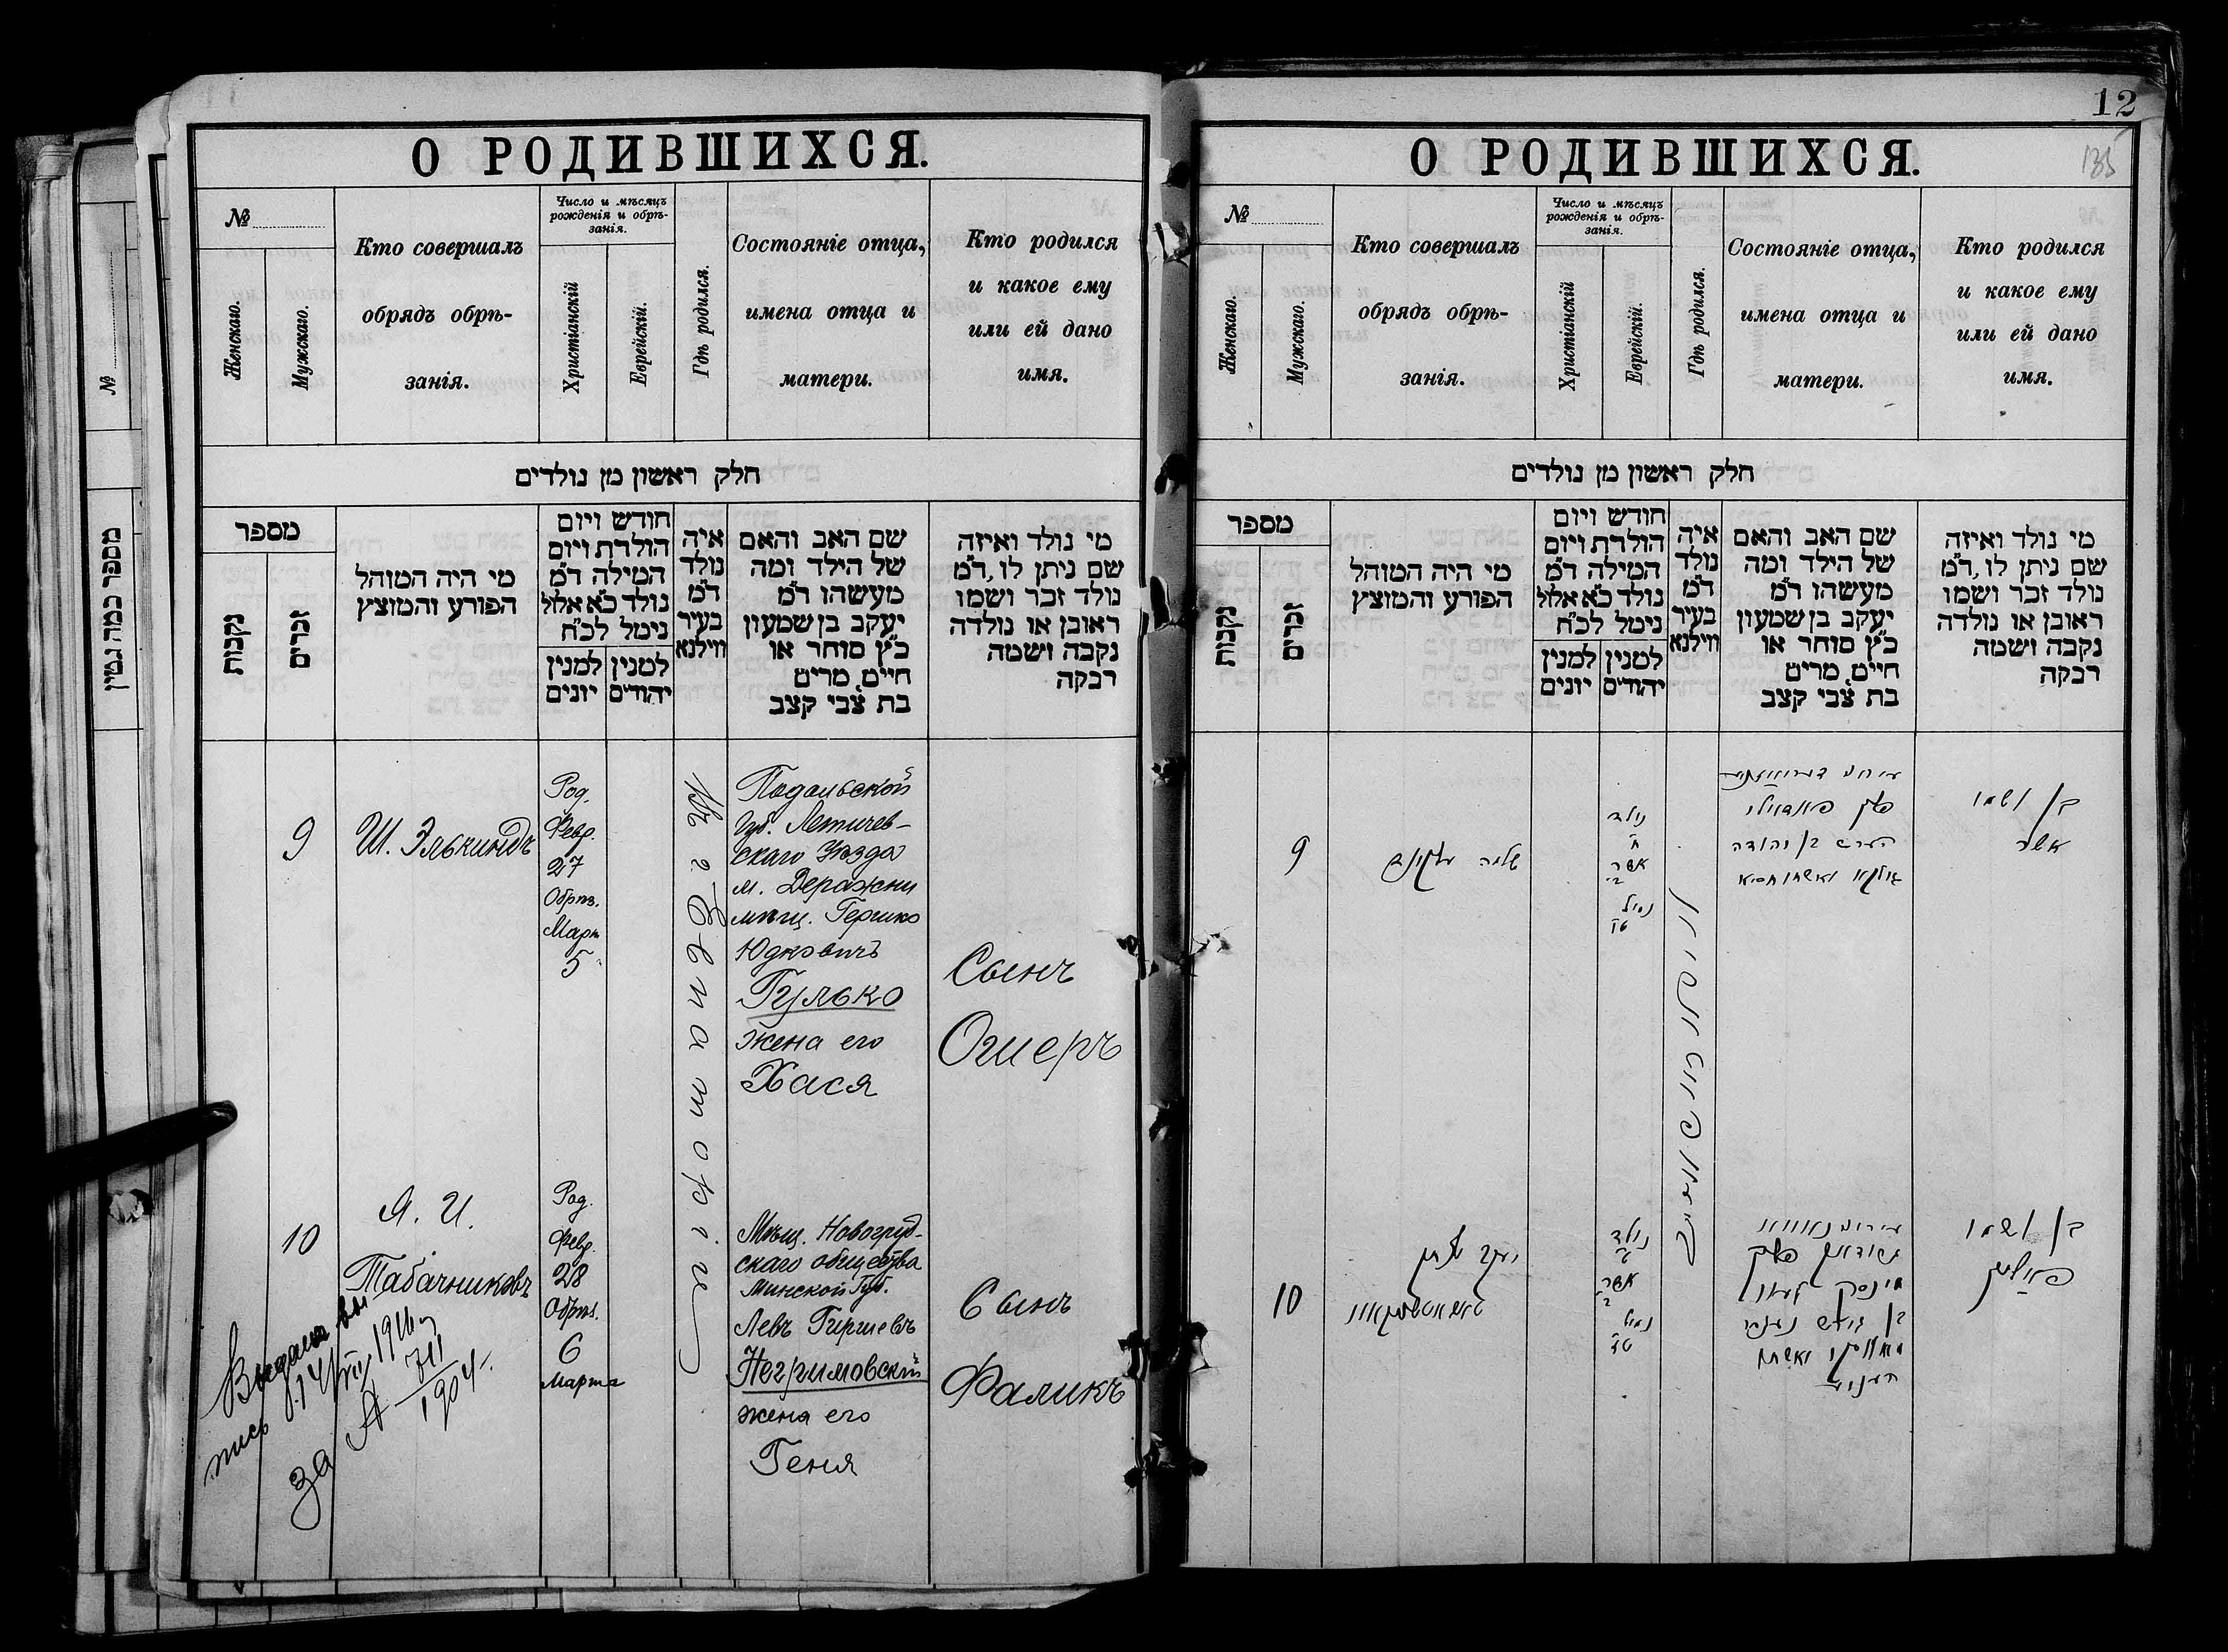 О РОДИВШИХСЯ.
№
Женскаго.
Мужскаго.
Кто совершалъ
обрядъ обрѣ-
занія.
Число и мѣсяцъ
рожденія и обрѣ-
занія.
Христіанскій
Еврейскій.
Гдѣ родился.
Состояніе отца,
имена отца и
матери.
Кто родился
и какое ему
или ей дано
имя.
חלק ראשון מן נולדים
מספר
נקבות
זכרים
מי היה המוהל
הפורע והמוצץ
חודש ויום
הולדת ויום
המילה ד״מ
נולד כ״א אלול
נימל לכ״ח
למנין יונים
למנין יהודים
איה
נולד
ד״מ
בעיר
ווילנא
שם האב והאם
של הילד ומה
מעשהו ד״מ
יעקב בן שמעון
כ״ץ סוחר או
חייט, מרים
בת צבי קצב
מי נולד ואיזה
שם ניתן לו, ד״מ
נולד זכר ושמו
ראובן או נולדה
נקבה ושמה
רבקה
9
Ш. Элькиндъ
Род.
Февр.
27
Обрѣз.
Март
5
Въ г. Евпаторіи
Подольской
Губ. Летичев-
скаго Уѣзда
м. Деражни
мѣщ. Гершко
Юдковичъ
Гулько
жена его
Хася
Сынъ
Ошеръ
10
Я. И.
Табачниковъ
Род.
Февр.
28
Обрѣз.
6
Марта
Мѣщ. Новогруд-
скаго общества
Минской Губ.
Левъ Гиршевъ
Негримовскій
жена его
Геня
Сынъ
Фаликъ
Выдана вы
пись
1916
за №
711
1904
№
מספר כמה גטין
12
135
О РОДИВШИХСЯ.
№
Женскаго.
Мужскаго.
Кто совершалъ
обрядъ обрѣ-
занія.
Число и мѣсяцъ
рожденія и обрѣ-
занія.
Христіанскій
Еврейскій.
Гдѣ родился.
Состояніе отца,
имена отца и
матери.
Кто родился
и какое ему
или ей дано
имя.
חלק ראשון מן נולדים
מספר
נקבות
זכרים
מי היה המוהל
הפורע והמוצץ
חודש ויום
הולדת ויום
המילה ד״מ
נולד כ״א אלול
נימל לכ״ח
למנין יונים
למנין יהודים
איה
נולד
ד״מ
בעיר
ווילנא
שם האב והאם
של הילד ומה
מעשהו ד״מ
יעקב בן שמעון
כ״ץ סוחר או
חייט, מרים
בת צבי קצב
מי נולד ואיזה
שם ניתן לו, ד״מ
נולד זכר ושמו
ראובן או נולדה
נקבה ושמה
רבקה
9
נולד
אדר
נמול
בן יהודה
בן ושמו
אשר
10
יעקב
נולד
אדר
נמול
מינסק
בן הירש
בן ושמו